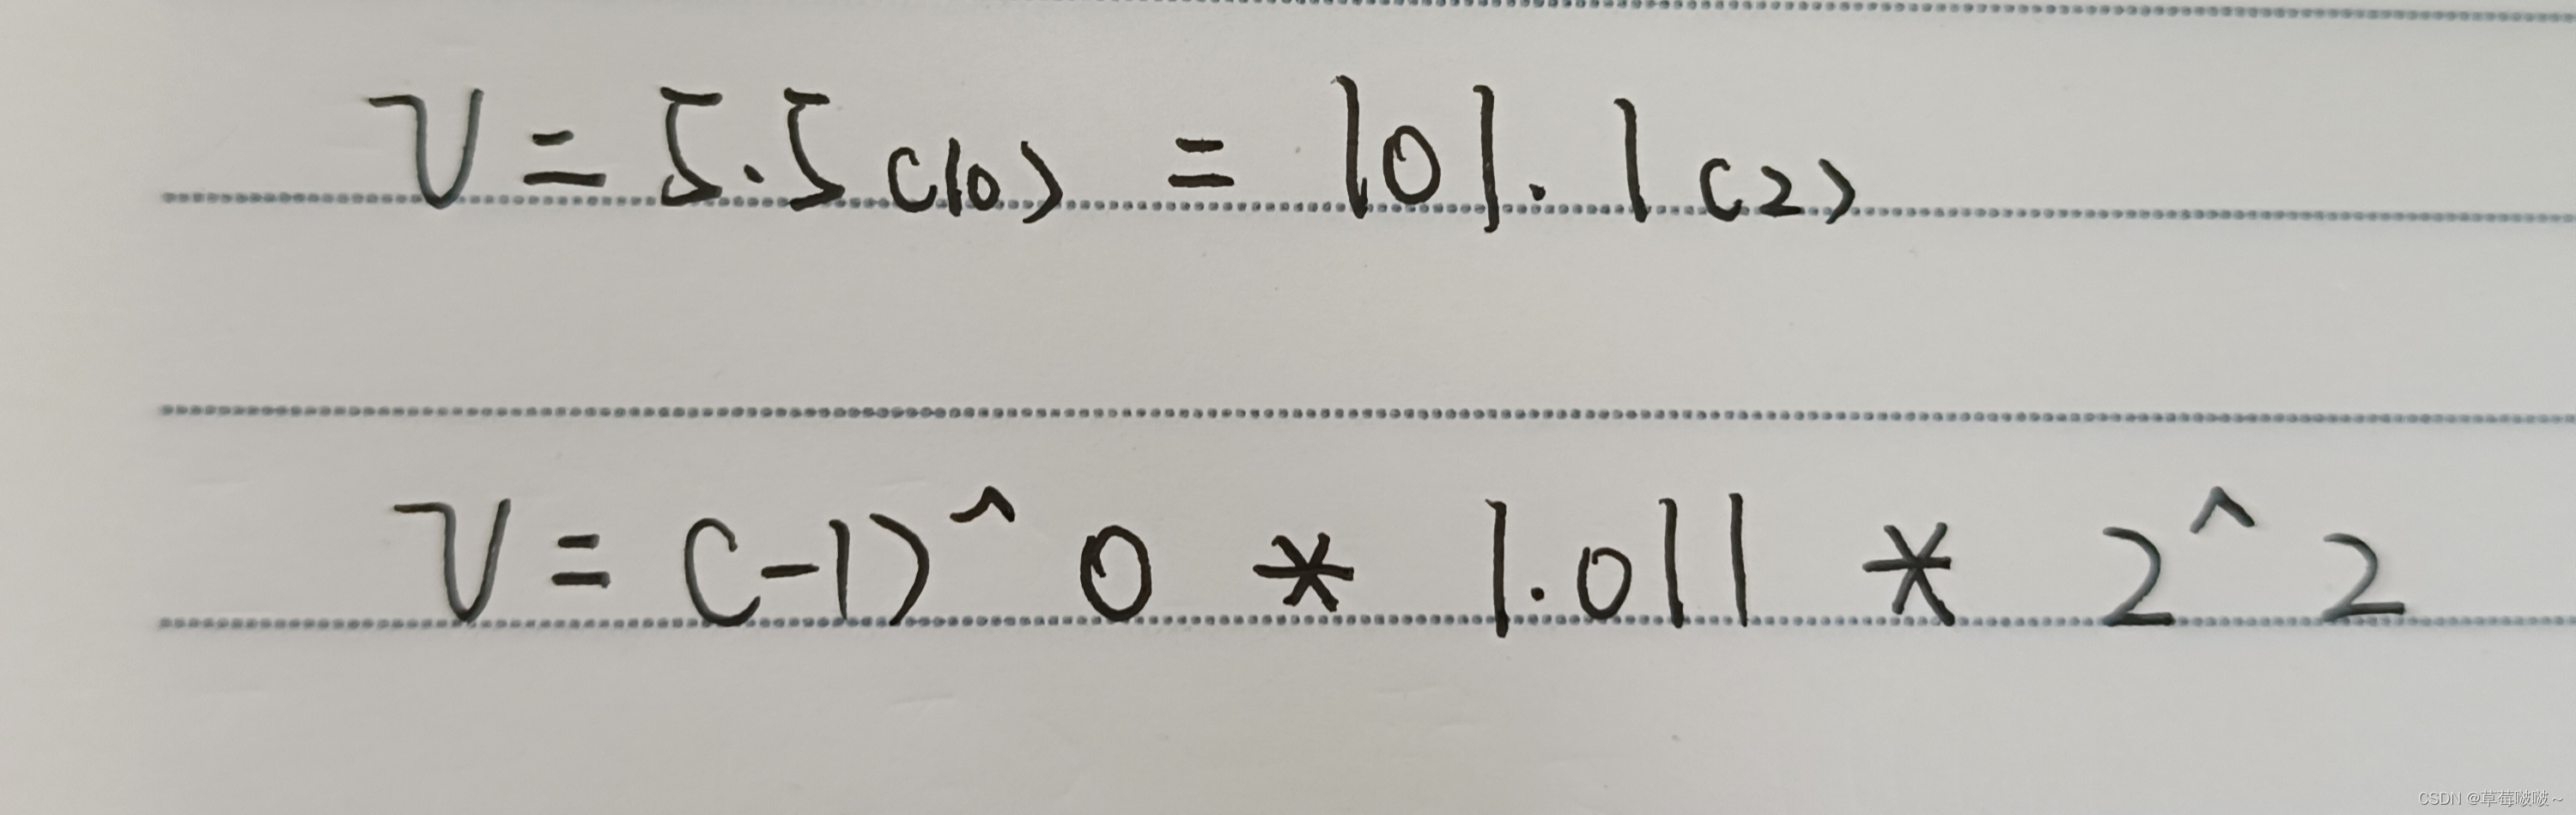 V = 5.5(10) = 101.1(2)
V = (-1)^0 * 1.011 * 2^2
CSDN @草莓啵啵~